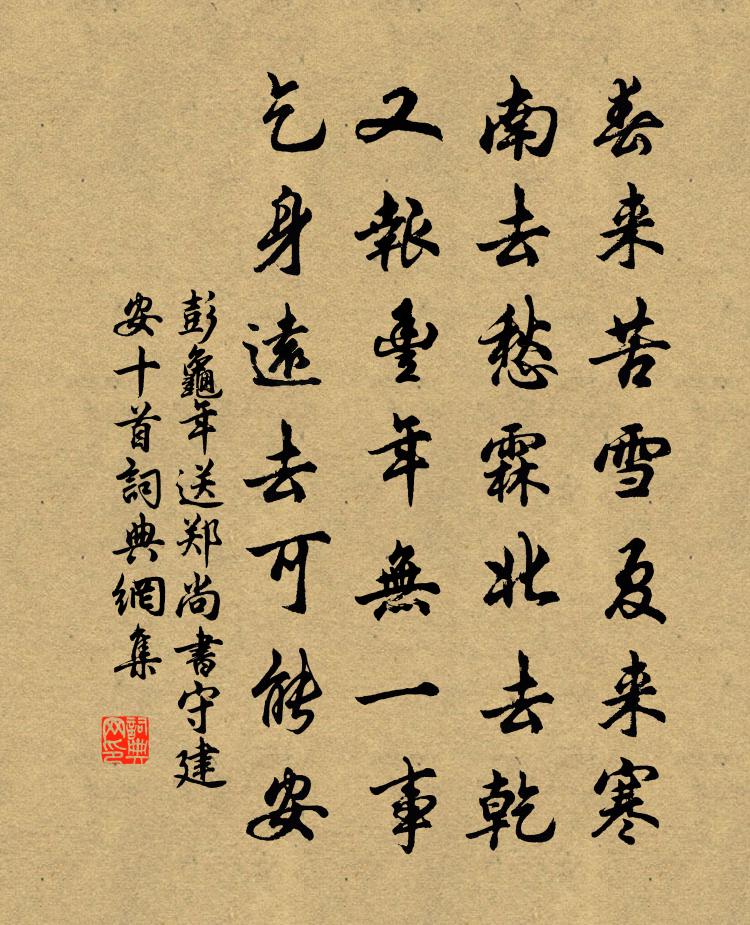 春来苦雪夏来寒
南去愁霖北去乾
又報豊年無一事
乞身遠去可能安
彭龜年送郑尚書守建
安十首詞典網集
詞典网印